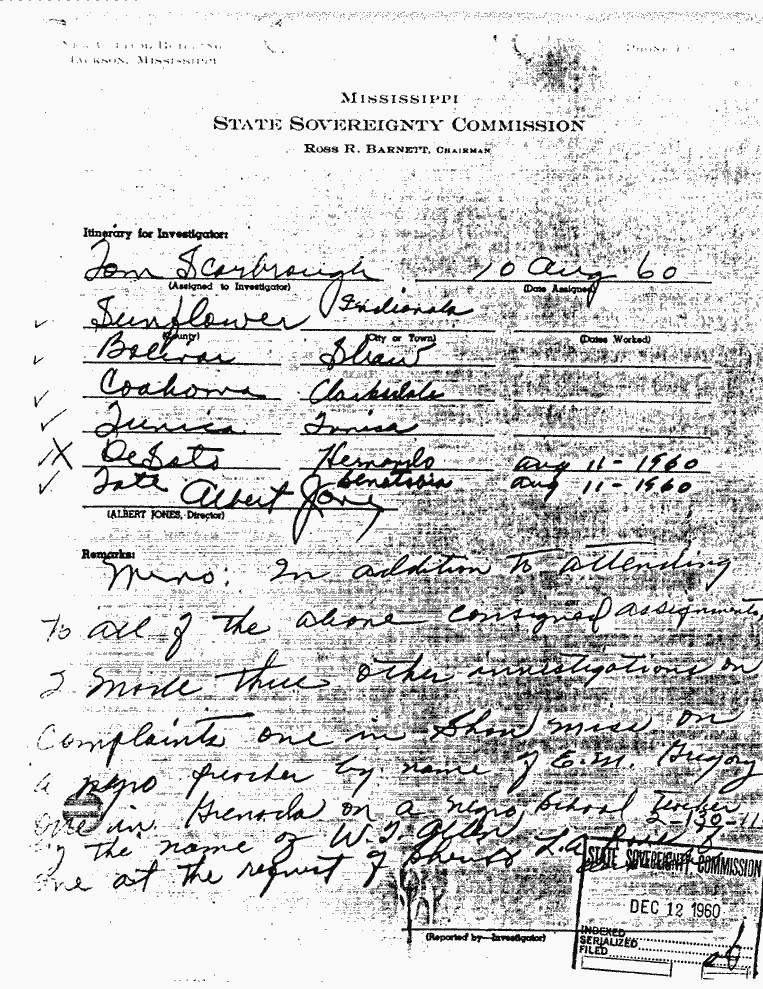 JACKSON, MISSISSIPPI
MISSISSIPPI
STATE SOVEREIGNTY COMMISSION
ROSS R. BARNETT, CHAIRMAN
Itinerary for Investigator:
Tom Scarbrough 10 Aug 60
(Assigned to Investigator) (Date Assigned)
Sunflower Indianola
(County) (City or Town) (Dates Worked)
Bolivar Shaw
Coahoma Clarksdale
Tunica Tunica
DeSoto Hernando Aug 11-1960
Tate Senatobia Aug 11-1960
Albert Jones
(ALBERT JONES, Director)
Remarks:
Memo: In addition to attending
to all of the above consigned assignments
I made three other investigations on
Complaints one in Shaw Miss on
a negro preacher by name of E.M. Gregory
one in Grenada on a negro School Teacher
2-130-11
by the name of W.T. Allen
one at the request of Sheriff L.A.
STATE SOVEREIGNTY COMMISSION
DEC 12 1960
INDEXED
SERIALIZED
FILED
(Reported by—Investigator)